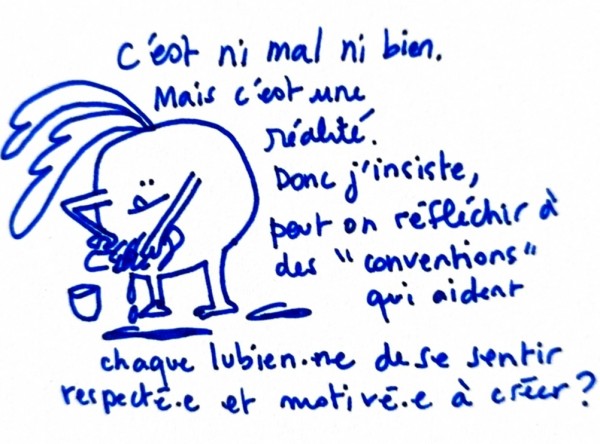 c'est ni mal ni bien.
Mais c'est une
réalité.
Donc j'insiste,
peut on réfléchir à
des "conventions"
qui aident
chaque lubien·ne de se sentir
respecté·e et motivé·e à créer?